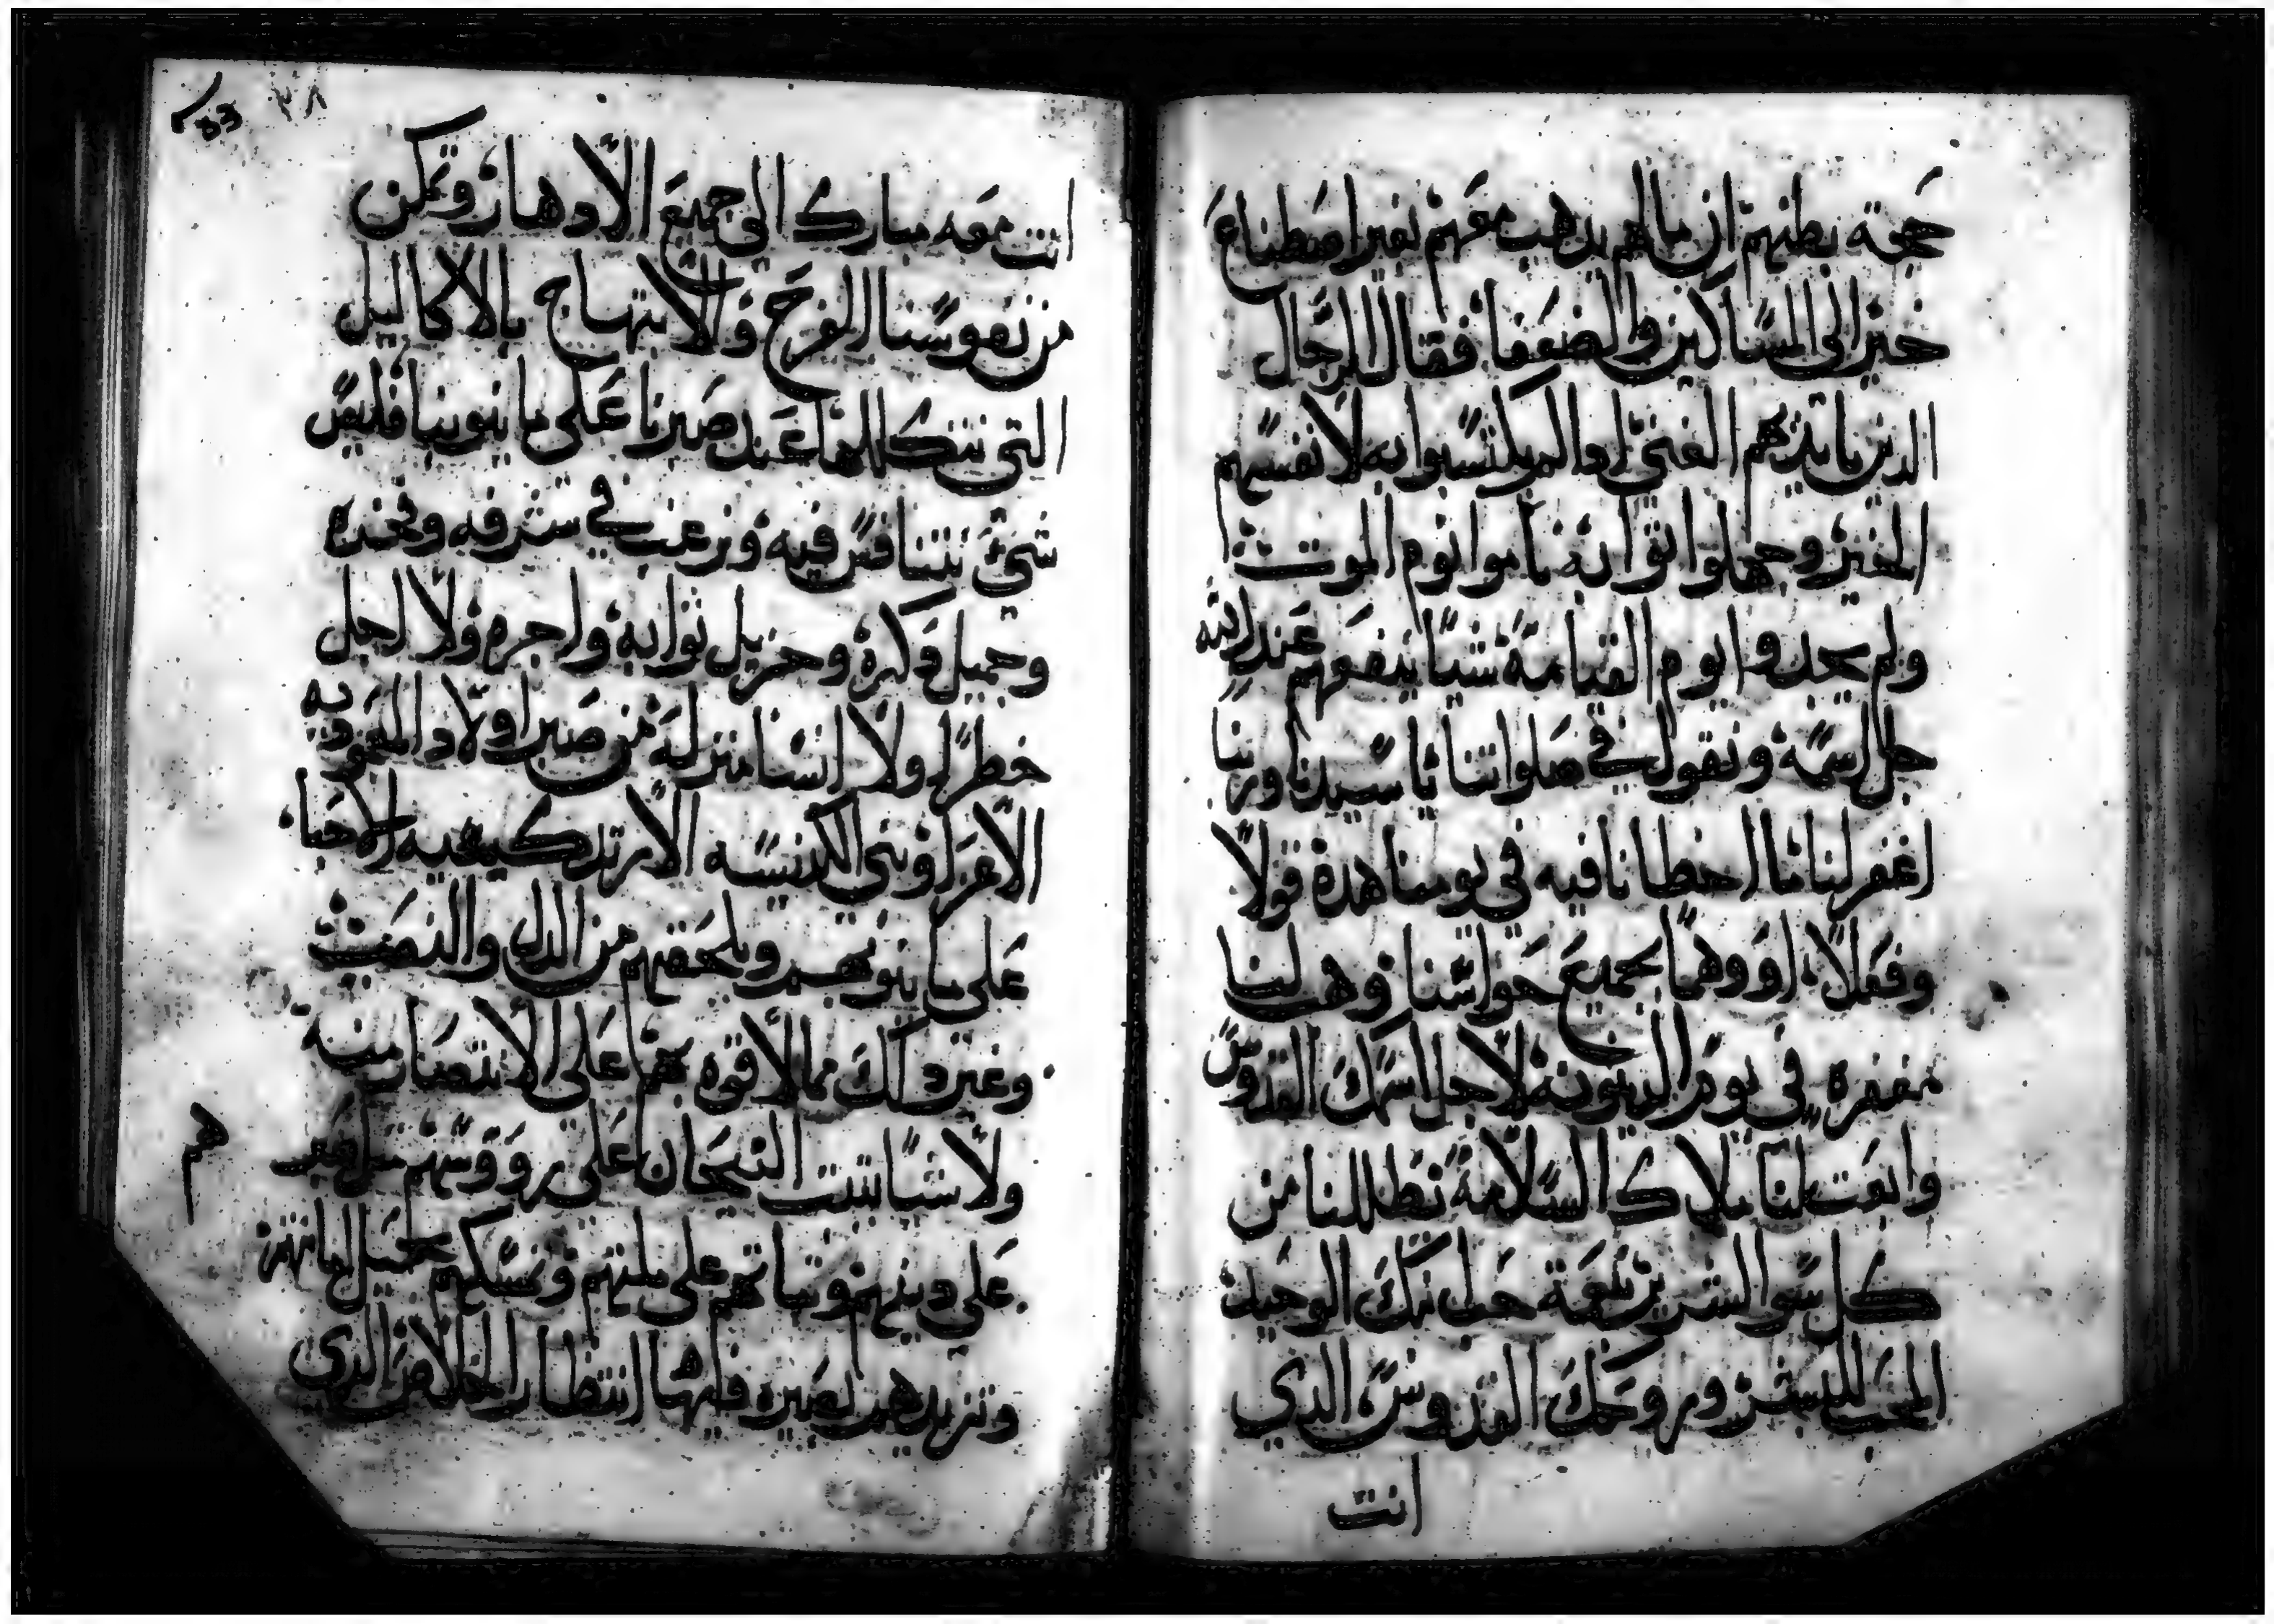 حجة بطنهم ان مالهم يدهب معهم بغير اصطناع
خير الى المساكين والضعفا فقال الرجال
الدين مابديهم الغنى ادا لم يكتسبوا به لانفسهم
الخير وجهلوا ثوابه ناموا نوم الموت
ولم يجدوا يوم القيامة شيا ينفعهم عند الله
جل اسمه ونقول في صلواتنا يا سيدنا وربنا
اغفر لنا ما اخطانا فيه في يومنا هده قولا
وفعلا او وهما بجميع حواسنا وهب لنا
مغفره في يوم الدينونه لاجل اسمك القدوس
وابعت لنا ملاك السلامة تظللنا من
كل سو الشرير بنعمة حب ابنك الوحيد
المحب للبشر وروحك القدوس الدي
انت
83 ٧٨
انت معه مبارك الى جميع الادهار وتمكن
من نفوسنا الفرح والابتهاج بالاكاليل
التي نتكللها عند صبرنا على ما ينوبنا فليس
شي نتنافس فيه ونرغب في شرفه وفخره
وجميل دكره وجزيل ثوابه واجره ولا اجل
خطرا ولا اسنا منزله من صبر اولاد المعموديه
الاعزا وبني الكنيسه الارتدكسيه الاحبا
على ما ينوبهم ويلحقهم من الدل والنصب
وغير دلك مما لا قوه بهم على الانتصار منه
ولا شيا يثبت التيجان على رووسهم مثل صبر
هم
على دينهم وثباتهم على ملتهم وتمسكهم بحبل امانتهم
وتزيدهم بصيره فيها انتظار الخلاص الدي